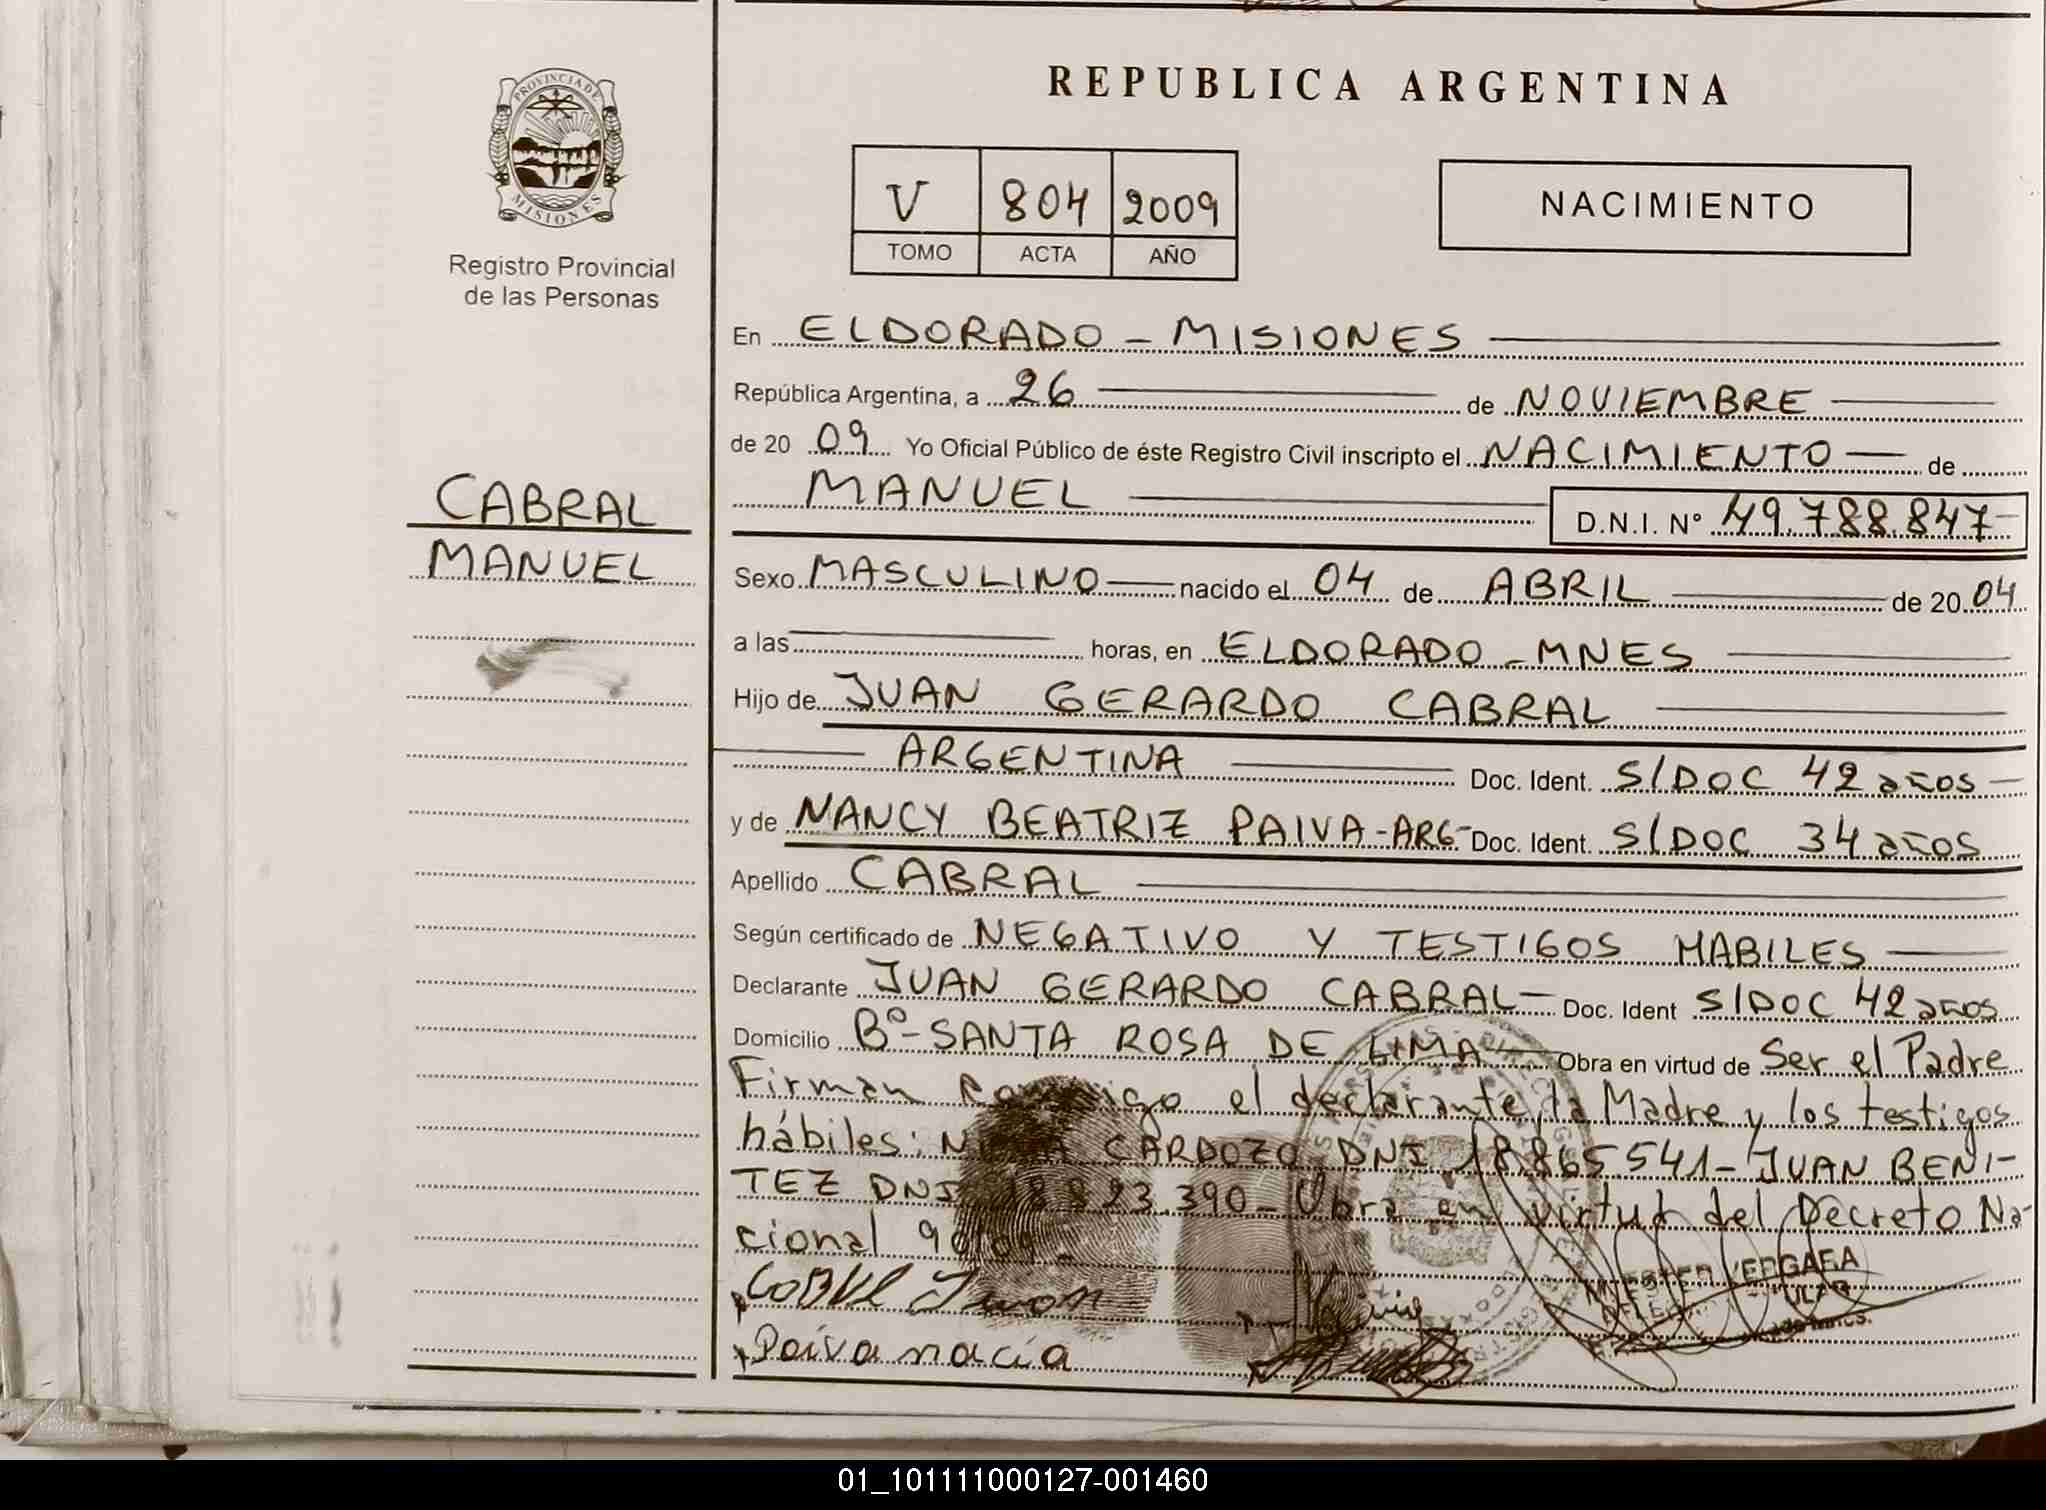 REPUBLICA ARGENTINA
PROVINCIA DE
MISIONES
Registro Provincial
de las Personas
V 804 2009
TOMO ACTA AÑO
NACIMIENTO
En ELDORADO - MISIONES
República Argentina, a 26 de NOVIEMBRE
de 20 09 Yo Oficial Público de éste Registro Civil inscripto el NACIMIENTO de
MANUEL D.N.I. N° 49.788.847
CABRAL
MANUEL
Sexo MASCULINO nacido el 04 de ABRIL de 20 04
a las horas, en ELDORADO - MNES
Hijo de JUAN GERARDO CABRAL
ARGENTINA Doc. Ident. S/DOC 42 años
y de NANCY BEATRIZ PAIVA - ARG - Doc. Ident. S/DOC 34 años
Apellido CABRAL
Según certificado de NEGATIVO Y TESTIGOS HABILES
Declarante JUAN GERARDO CABRAL - Doc. Ident S/DOC 42 años
Domicilio Bº - SANTA ROSA DE LIMA Obra en virtud de Ser el Padre
Firman el declarante, la Madre y los testigos
hábiles: CARDOZO DNI 18.865541 - JUAN BENI-
TEZ DNI 823.390 - Obra en virtud del Decreto Na-
cional
Juan
Paiva nacia
ESTER VERGARA
01_101111000127-001460